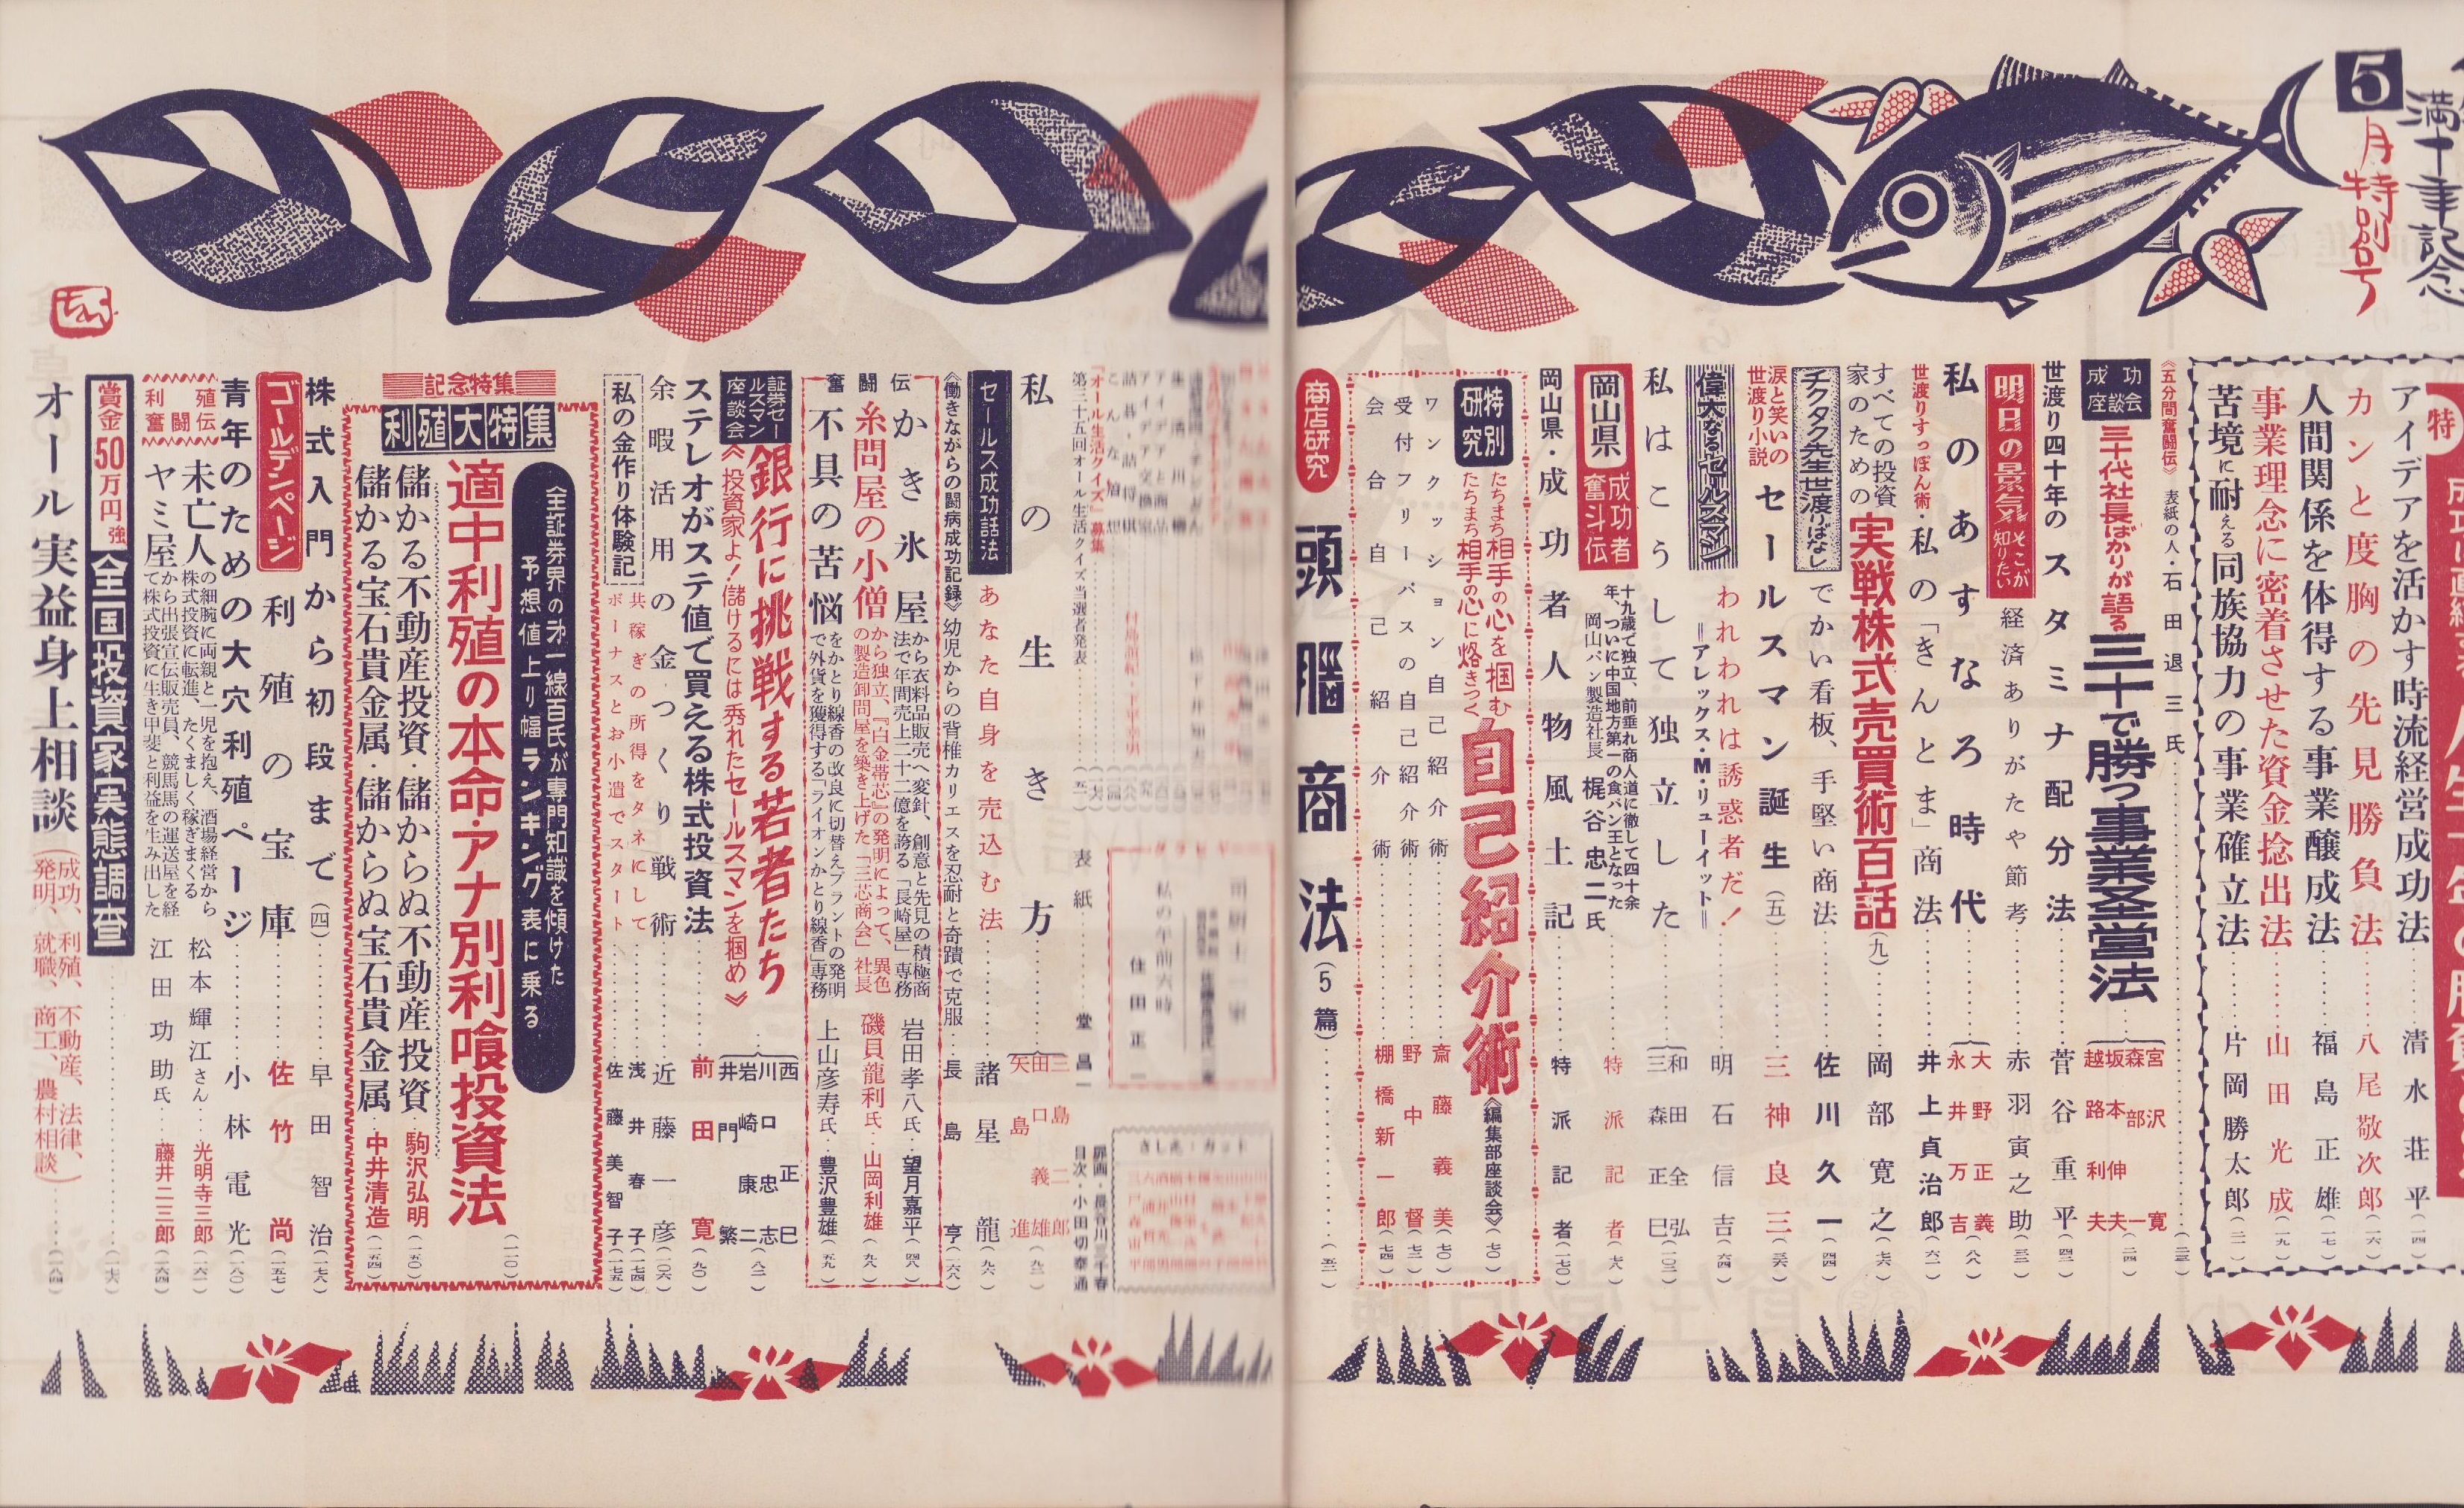 満十年記念
5
月特別号
特
アイデアを活かす時流経営成功法……清水荘平(一四)
カンと度胸の先見勝負法……八尾敬次郎(一六)
人間関係を体得する事業醸成法……福島正雄(一七)
事業理念に密着させた資金捻出法……山田光成(一九)
苦境に耐える同族協力の事業確立法……片岡勝太郎(二一)
《五分間奮闘伝》表紙の人・石田退三氏
成功座談会
三十代社長ばかりが語る
三十で勝つ事業経営法
宮沢寛
森部一
坂本伸夫
越路利夫
(二四)
世渡り四十年のスタミナ配分法……菅谷重平(四二)
明日の景気
そこが知りたい
経済ありがたや節考……赤羽寅之助(三二)
私のあすなろ時代
大野正義
永井万吉
(八八)
世渡りすっぽん術・私の「きんとま」商法……井上貞治郎(六二)
すべての投資家のための
実戦株式売買術百話(九)……岡部寛之(七六)
チクタク先生世渡りばなし
でかい看板、手堅い商法……佐川久一(四四)
涙と笑いの世渡り小説
セールスマン誕生(五)……三神良三(三六)
偉大なるセールスマン
われわれは誘惑者だ!
=アレックス・M・リューイット=……明石信吉(六四)
私はこうして独立した
和田全弘
三森正巳
(一〇三)
岡山県
成功者奮斗伝
十九歳で独立、前垂れ商人道に徹して四十余
年、ついに中国地方第一の食パン王となった
岡山パン製造社長 梶谷忠二氏……特派記者(七八)
岡山県・成功者人物風土記……特派記者(一七〇)
特別研究
たちまち相手の心を掴む
たちまち相手の心に烙きつく
自己紹介術《編集部座談会》(七〇)
ワンクッション自己紹介術……斎藤義美(七〇)
受付フリーパスの自己紹介術……野中督(七二)
会合自己紹介術……棚橋新一郎(七四)
商店研究
頭脳商法(5篇)
「オール生活クイズ」募集
第三十五回オール生活クイズ当選者発表
表紙……堂昌一
私の午前六時
住田正一
扉画・長谷川三千春
目次・小田切泰通
さしゑ・カット
私の生き方
三島二郎
田口義雄
矢島進
(九二)
セールス成功話法
あなた自身を売込む法……諸星龍(九六)
《働きながらの闘病成功記録》幼児からの背椎カリエスを忍耐と奇蹟で克服…長島亨(一六八)
奮闘伝
かき氷屋から衣料品販売へ変針、創意と先見の積極商
法で年間売上二十二億を誇る「長崎屋」専務 岩田孝八氏…望月嘉平(四八)
糸問屋の小僧から独立、『白金帯芯』の発明によって、異色
の製造卸問屋を築き上げた「三芯商会」社長 磯貝龍利氏…山岡利雄(九八)
不具の苦悩をかとり線香の改良に切替えプラントの発明
で外貨を獲得する「ライオンかとり線香」専務 上山彦寿氏…豊沢豊雄(五九)
証券セールスマン座談会
銀行に挑戦する若者たち
《投資家よ!儲けるには秀れたセールスマンを掴め》
西正巳
川口忠志
岩崎康二
井門繁
(八二)
ステレオがステ値で買える株式投資法……前田寛(九〇)
余暇活用の金つくり戦術……近藤一彦(一〇六)
私の金作り体験記
共稼ぎの所得をタネにして……浅井春子(一七四)
ボーナスとお小遣でスタート……佐藤美智子(一七五)
記念特集
利殖大特集
全証券界の第一線百氏が専門知識を傾けた
予想値上り幅ランキング表に乗る
適中利殖の本命・アナ別利喰投資法(一一〇)
儲かる不動産投資・儲からぬ不動産投資…駒沢弘明(一五〇)
儲かる宝石貴金属・儲からぬ宝石貴金属…中井清造(一五四)
株式入門から初段まで(四)……早田智治(一七八)
ゴールデンページ
利殖の宝庫……佐竹尚(一五七)
青年のための大穴利殖ページ……小林電光(一八〇)
利殖奮闘伝
未亡人の細腕に両親と一児を抱え、酒場経営から
株式投資に転進、たくましく稼ぎまくる 松本輝江さん…光明寺三郎(一六二)
ヤミ屋から出張宣伝販売員、競馬馬の運送屋を経
て株式投資に生き甲斐と利益を生み出した 江田功助氏…藤井二三郎(一六四)
賞金50万円強
全国投資家実態調査……(一七六)
オール実益身上相談(成功、利殖、不動産、法律、
発明、就職、商工、農村相談)……(一八四)